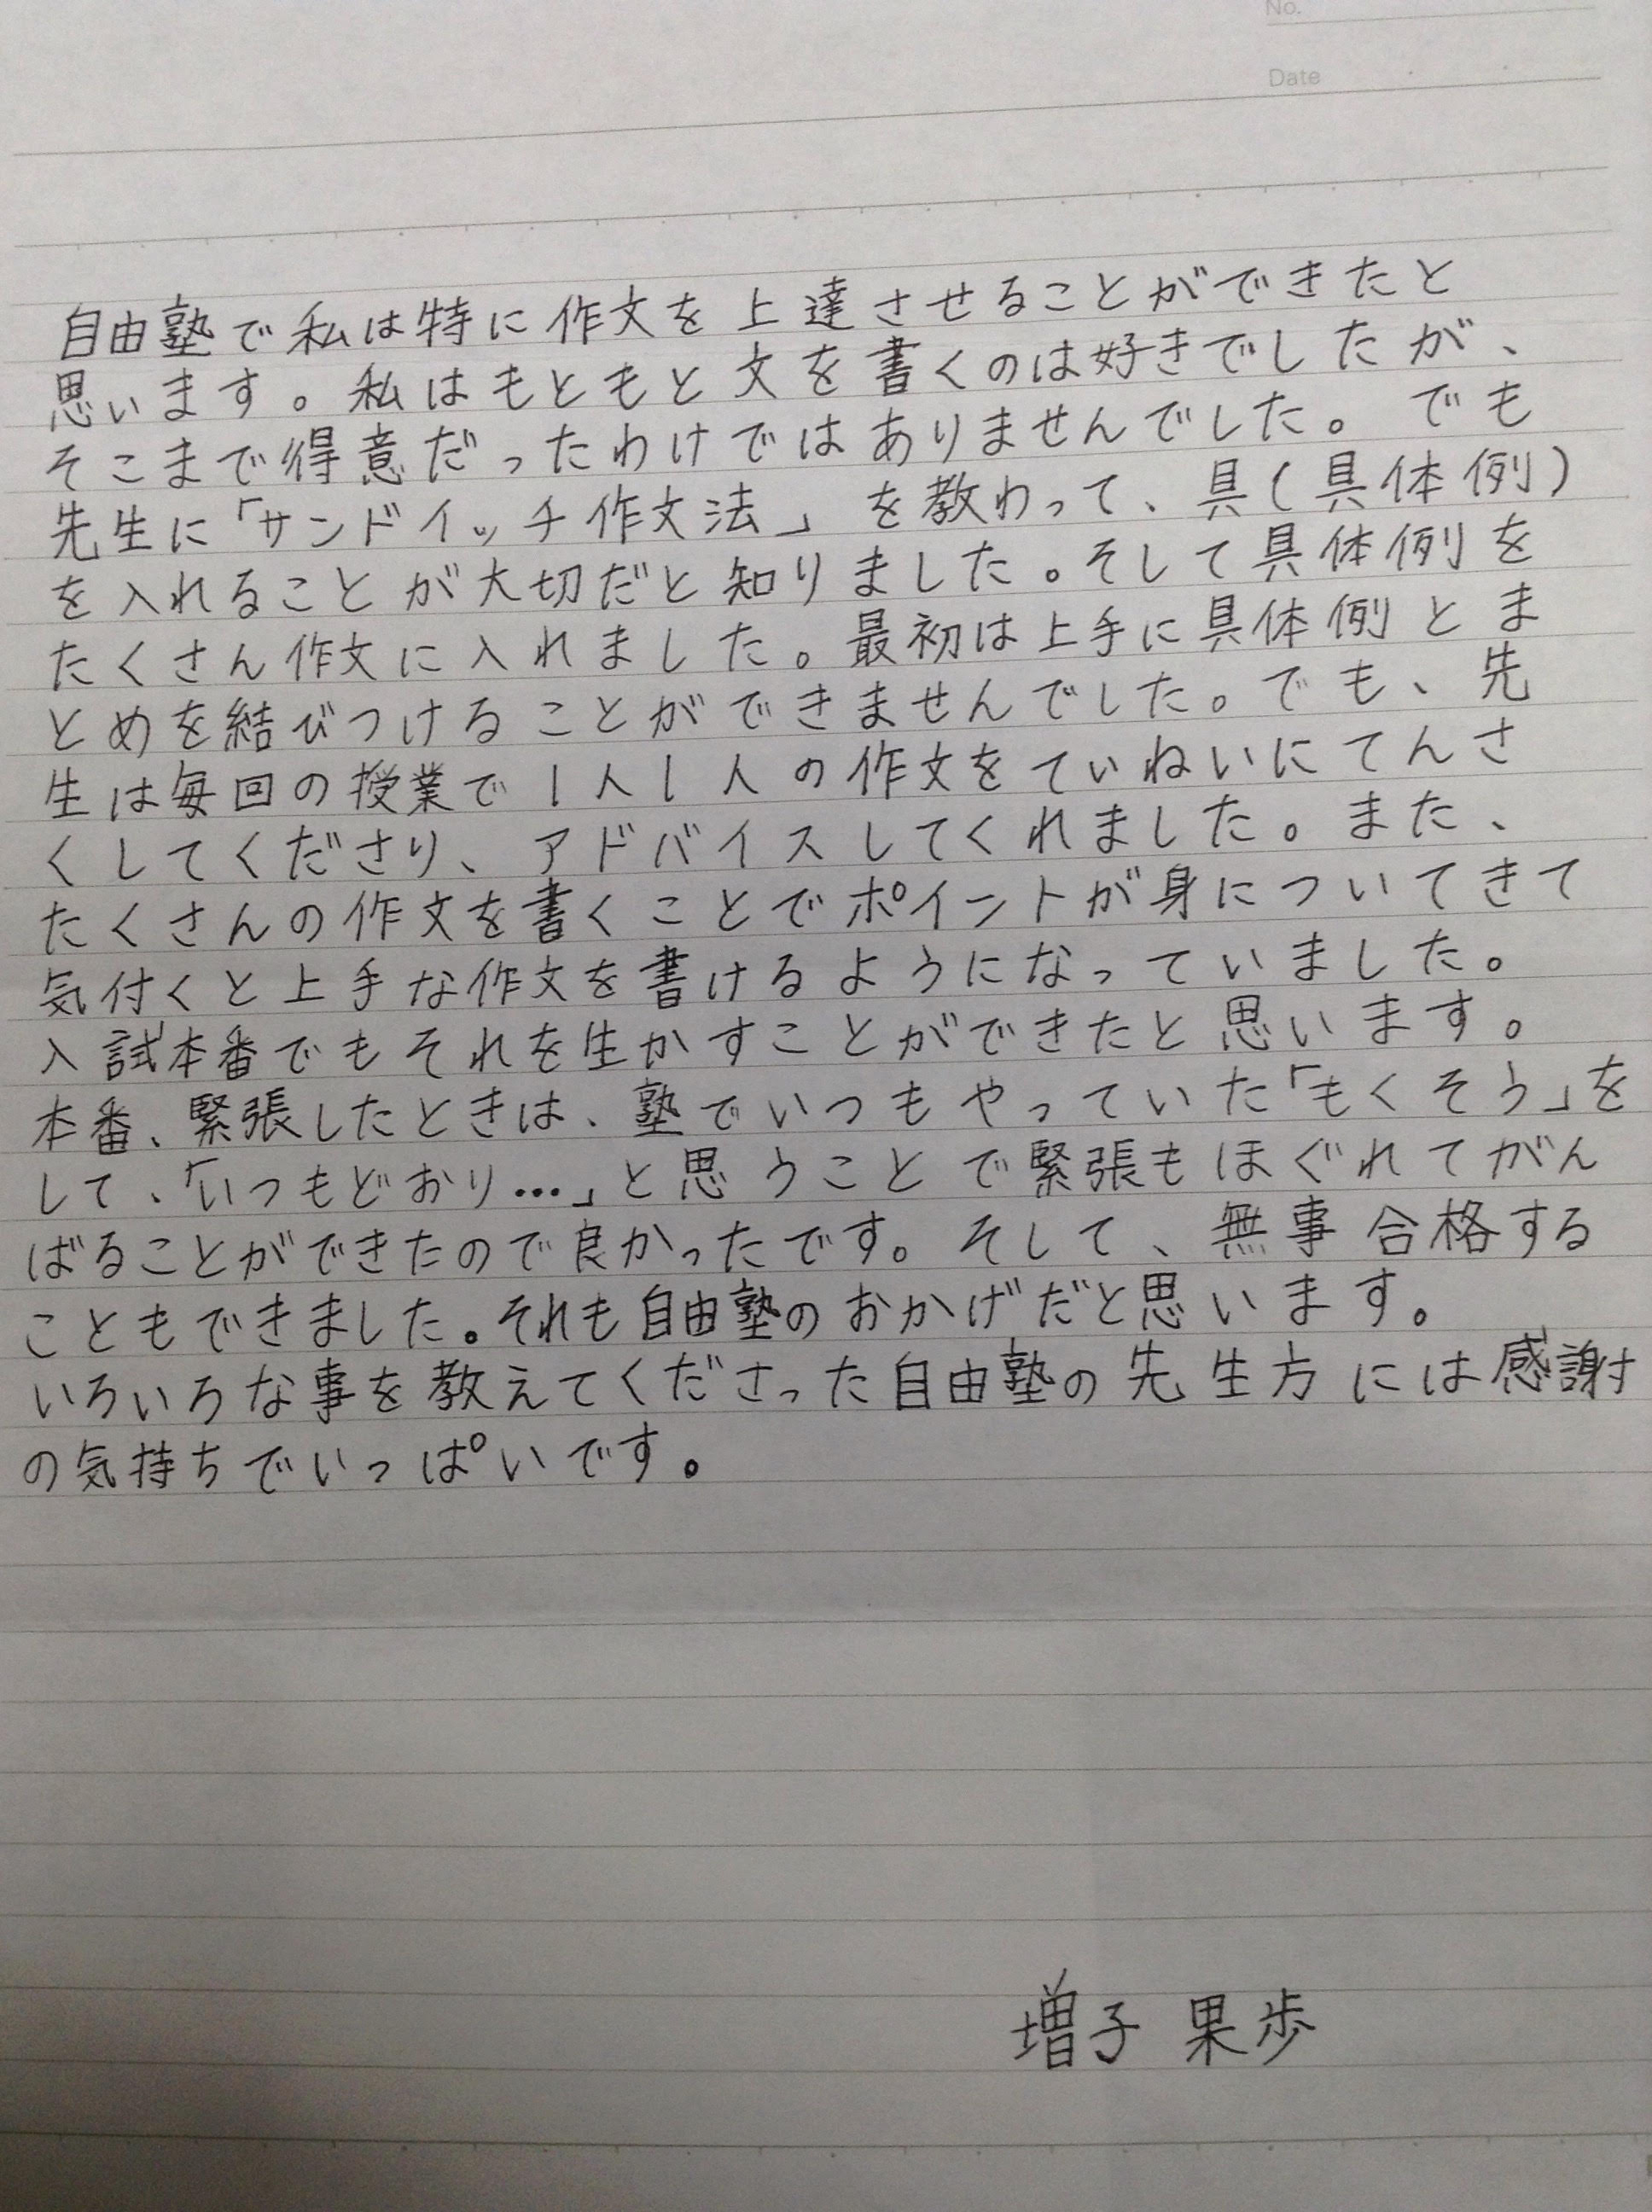 No.
Date
自由塾で私は特に作文を上達させることができたと
思います。私はもともと文を書くのは好きでしたが、
そこまで得意だったわけではありませんでした。でも
先生に「サンドイッチ作文法」を教わって、具(具体例)
を入れることが大切だと知りました。そして具体例を
たくさん作文に入れました。最初は上手に具体例とま
とめを結びつけることができませんでした。でも、先
生は毎回の授業で1人1人の作文をていねいにてんさ
くしてくださり、アドバイスしてくれました。また、
たくさんの作文を書くことでポイントが身についてきて
気付くと上手な作文を書けるようになっていました。
入試本番でもそれを生かすことができたと思います。
本番、緊張したときは、塾でいつもやっていた「もくそう」を
して、「いつもどおり…」と思うことで緊張もほぐれてがん
ばることができたので良かったです。そして、無事合格する
こともできました。それも自由塾のおかげだと思います。
いろいろな事を教えてくださった自由塾の先生方には感謝
の気持ちでいっぱいです。
増子 果歩